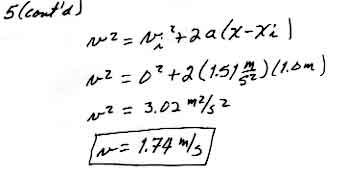 5(cont'd)
v² = vᵢ² + 2a(x-xᵢ)
v² = 0² + 2(1.51 m/s²)(1.0m)
v² = 3.02 m²/s²
v = 1.74 m/s